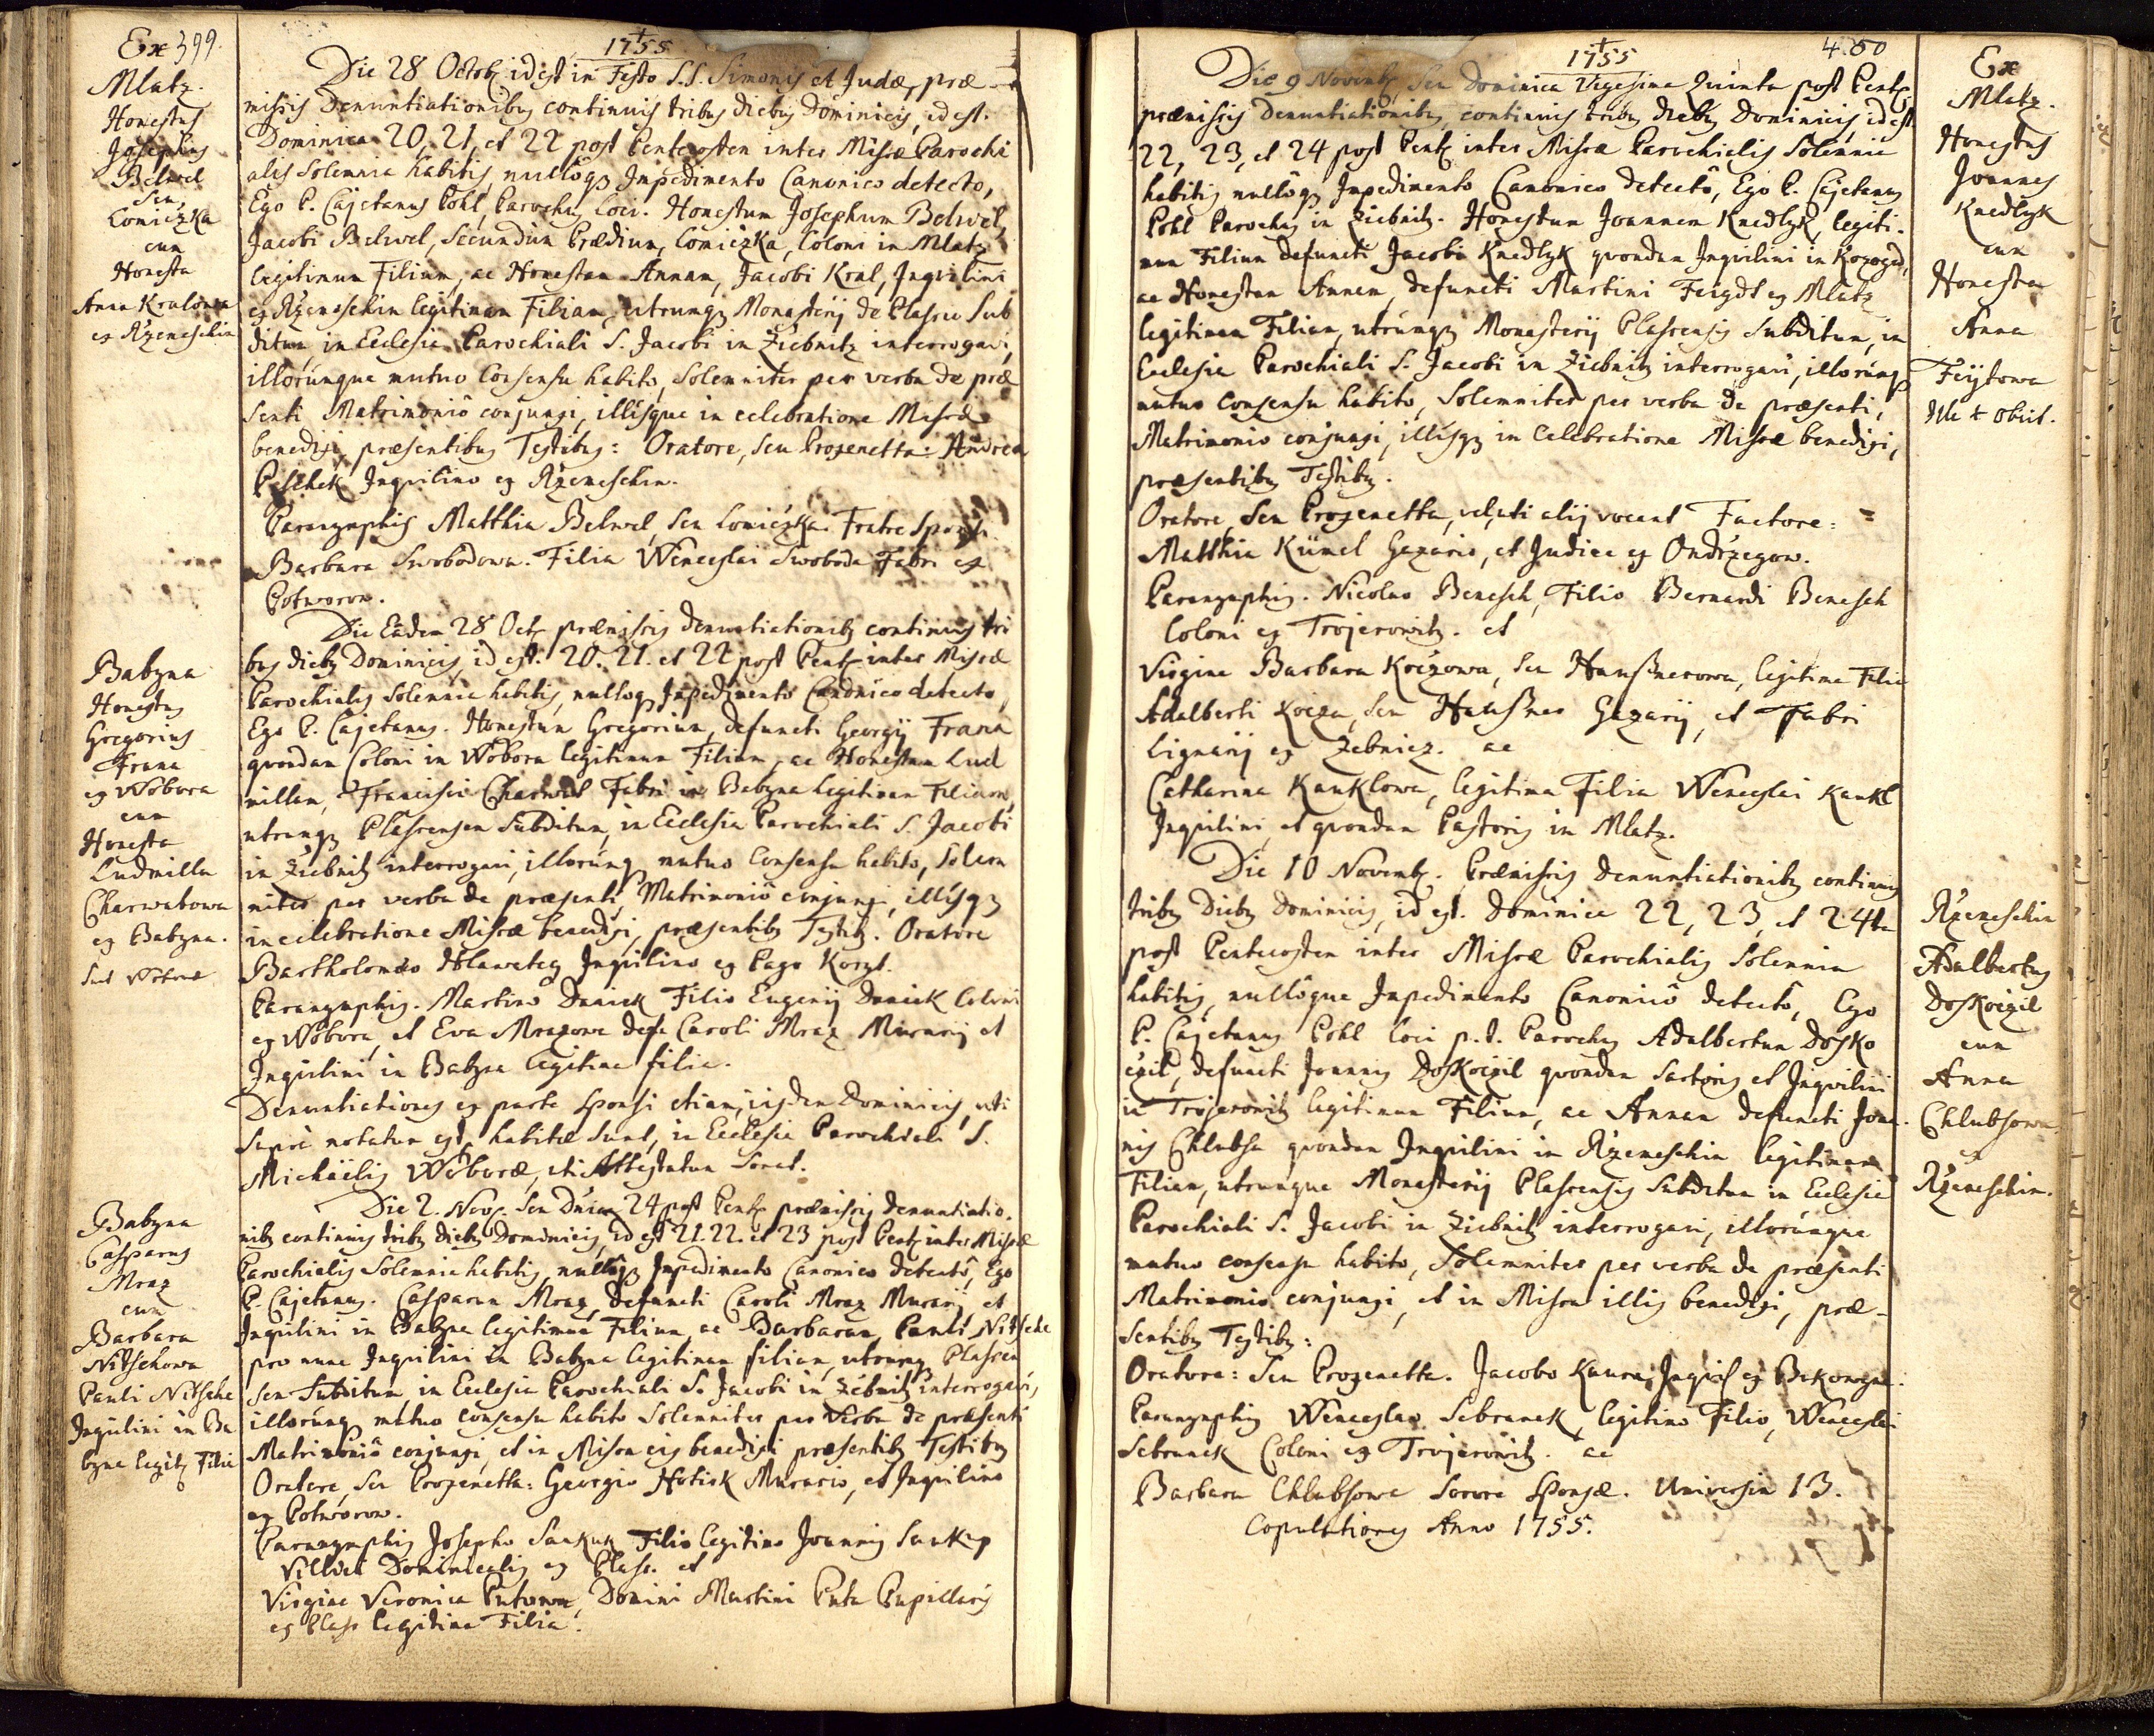 Ex 399.
Mlatz.
Honestus
Josephus
Belwel
seu
Lomiczka
cum
Honesta
Anna Kralowa
ex Rzemeschin
1755
Die 28 Octob: id est in Festo S.S. Simonis et Judæ, præ-
missis Denuntiationibus continuis tribus diebus Dominicis, id est.
Dominica 20, 21, et 22 post Pentecosten inter Missæ Parochi
alis Solemnia habitis, nullôq3 Impedimento Canonico detecto,
Ego P. Cajetanus Pohl, Parochus loci. Honestum Josephum Belwel,
Jacobi Belwel, secundum Prædium, Lomiczka, Coloni in Mlatz
legitimum Filium, ac Honestam Annam, Jacobi Kral, Inquilini
ex Rzemeschin legitimam Filiam, utrumq3 Monasterij de Plass Sub
ditum, in Ecclesia Parochiali S. Jacobi in Ziebnitz interrogavi,
illorúmque mutuo Consensu habito, Solemniter per verba de præ
senti Matrimoniô conjunxi, illísque in celebratione Missæ
benedixi, præsentibus Testibus: Oratore, seu Proxenetta: Andrea
Peschek Inquilino ex Rzemeschin.
Paranymphis Matthia Belwel, seu Lomiczka Fratre Sponsi
Barbara Swobodowa. Filia Wenceslai Swoboda Fabri ex
Potworow.
Babyna
Honestus
Gregorius
Frana
ex Wobora
cum
Honesta
Ludmilla
Charwatowa
ex Babyna.
Die Eâdem 28 Oct: præmissis denuntiationib3 continuis tri
bus dieb3 Dominicis, id est. 20. 21. et 22 post Pent: inter Missæ
Parochialis Solemnia habitis, nulloq3 Impedimento Canonico detecto,
Ego P. Cajetanus. Honestum Gregorium, defuncti Georgij Frana
quondam Coloni in Wobora legitimum Filium, ac Honestam Lud
millam, Francisci Charwat Fabri in Babyna legitimam Filiam,
utrumq3 Plassensem Subditum, in Ecclesia Parochiali S. Jacobi
in Ziebnitz interrogavi, illorúmq3 mutuo Consensu habito, Solem
niter per verba de præsenti, Matrimoniô conjunxi, illísq3
in celebratione Missæ benedixi, præsentib3 Testib3. Oratore
Bartholomæo Hlawatey Inquilino ex Pago Koryt.
Paranymphis. Martino Daniek Filio Eugenij Daniek Coloni
ex Wobora, et Eva Mrazowa defu: Caroli Mraz Murarij et
Inquilini in Babyna legitima filia.
Denuntiationes ex parte Sponsi etiam, iisdem Dominicis, uti
suprà notatum est, habitæ sunt, in Ecclesia Parochiali S.
Michaëlis Woboræ, uti Attestatum sonat.
Babyna
Casparus
Mraz
cum
Barbara
Nitschowa
Pauli Nitsche
Inquilini in Ba
byna legit: Filia
Die 2. Nov: seu Dnica 24 post Pent: præmissis denuntiatio-
nib3 continuis trib3 dieb3 Dominicis, Id est 21. 22. et 23 post Pent: inter Missæ
Parochialis Solemnia habitis, nullôq3 Impedimento Canonico detectô, Ego
P. Cajetanus. Casparum Mraz, defuncti Caroli Mraz Murarij, et
Inquilini in Babyna legitimum Filium, ac Barbaram, Pauli Nitsche
pro nunc Inquilini in Babyna legitimam filiam, utrumq3 Plassen
sem Subditum, in Ecclesia Parochiali S. Jacobi in Zebnitz interrogavi,
illorúmq3 mutuo consensu habito Solemniter per verba de præsenti
Matrimoniô conjunxi, et in Missa eis benedixi præsentib3 Testib3
Oratore, seu Proxenetta: Georgio Hotiek Murario, et Inquilino
ex Potworow.
Paranymphis Josepho Saukup Filio legitimo Joannis Saukup
Villici Dominicalis ex Plass. et
Virgine Veronica Putowa, Domini Martini Puta Pupillaris
ex Plass legitima Filia.
1755
4.00
Die 9 Novemb: seu Dominica Vigesima Quinta post Pent:
præmissis Denuntiationib3, continuis trib3 dieb3 Dominicis, id est
22, 23, et 24 post Pent: inter Missæ Parochialis Solemnia
habitis, nullôq3 Impedimento Canonico detectô, Ego P. Cajetanus
Pohl Parochus in Ziebnitz. Honestum Joannem Knedlyk, legiti-
mum Filium defuncti Jacobi Knedlyk quondam Inquilini in Kozogед,
ac Honestam Annam, defuncti Martini Feigdt ex Mlatz
legitimam Filiam, utrúmq3 Monasterij Plassensis Subditum, in
Ecclesia Parochiali S. Jacobi in Ziebnitz interrogavi, illorúmq3
mutuo consensu habito, Solemniter per verba de præsenti,
Matrimonio conjunxi, illísq3 in Celebratione Missæ benedixi,
præsentib3 Testib3.
Oratore, seu Proxenetta, veluti alij vocant Factore:
Matthia Kümel Gazario, et Judice ex Ondrzegow.
Paranymphis. Nicolao Benesch, Filio Bernardi Benesch
Coloni ex Trojerowitz. et
Virgine Barbara Koczowa, seu Hausnerowa, legitima Filia
Adalberti Kocza, seu Hausner Gazarij, et Fabri
Lignarij ex Zebnicz. ac
Catharina Kauklowa, legitima Filia Wenceslai Kaukl
Inquilini, et quondam Pastoris in Mlatz.
Ex
Mlatz.
Honestus
Joannes
Knedlyk
cum
Honesta
Anna
Feijtowa
Ille † obiit.
Die 10 Novemb: Præmissis Denuntiationib3 continuis
trib3 Dieb3 Dominicis, id est. Dominica 22, 23, et 24ta
post Pentecosten inter Missæ Parochialis Solemnia
habitis, nullôque Impedimento Canonicô detectô, Ego
P. Cajetanus Pohl loci p.t. Parochus Adalbertum Dosko
czil, defuncti Joannis Doskoczil quondam Sartoris et Inquilini
in Trojerowitz legitimum Filium, ac Annam defuncti Joan-
nis Chlubsa quondam Inquilini in Rzemeschin legitimam
Filiam, utrumque Monasterij Plassensis Subditum in Ecclesia
Parochiali S. Jacobi in Ziebnitz interrogavi, illorúmque
mutuo consensu habito, Solemniter per verba de præsenti
Matrimonio conjunxi, et in Missa illis benedixi, præ-
sentib3 Testib3:
Oratore: seu Proxenetta. Jacobo Kaura, Inquil: ex Bukowyna.
Paranymphis Wenceslao Sebranek, legitimo Filio, Wenceslai
Sebranek Coloni ex Trojerowitz. ac
Barbara Chlubsowa Sorore Sponsæ. Universim 13.
Copulationes Anno 1755.
Rzemeschin
Adalbertus
Doskoczil
cum
Anna
Chlubsowa
ex
Rzemeschin.